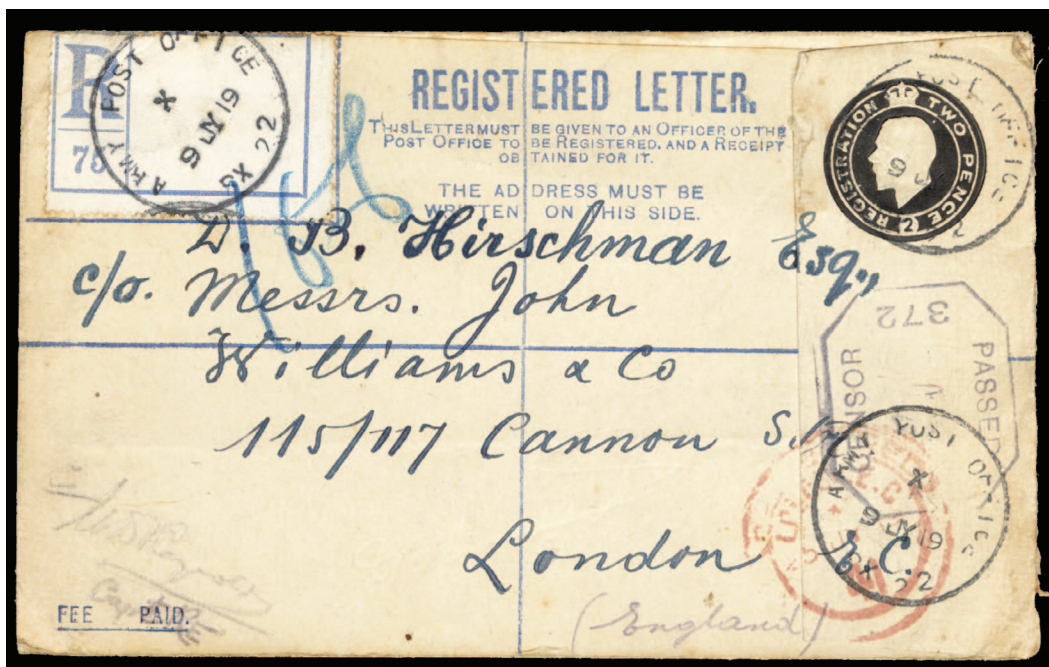 R
75
ARMY POST OFFICE
X
9 JY 19
SX 22
REGISTERED LETTER.
THIS LETTER MUST BE GIVEN TO AN OFFICER OF THE
POST OFFICE TO BE REGISTERED, AND A RECEIPT
OBTAINED FOR IT.
THE ADDRESS MUST BE
WRITTEN ON THIS SIDE.
REGISTRATION TWO PENCE (2)
POST OFFICE
9
2
D. B. Hirschman Esq.,
c/o. Messrs. John
Williams & Co
115/117 Cannon St.
London E.C.
(England)
PASSED
CENSOR
372
ARMY POST OFFICE
X
9 JY 19
SX 22
FEE PAID.